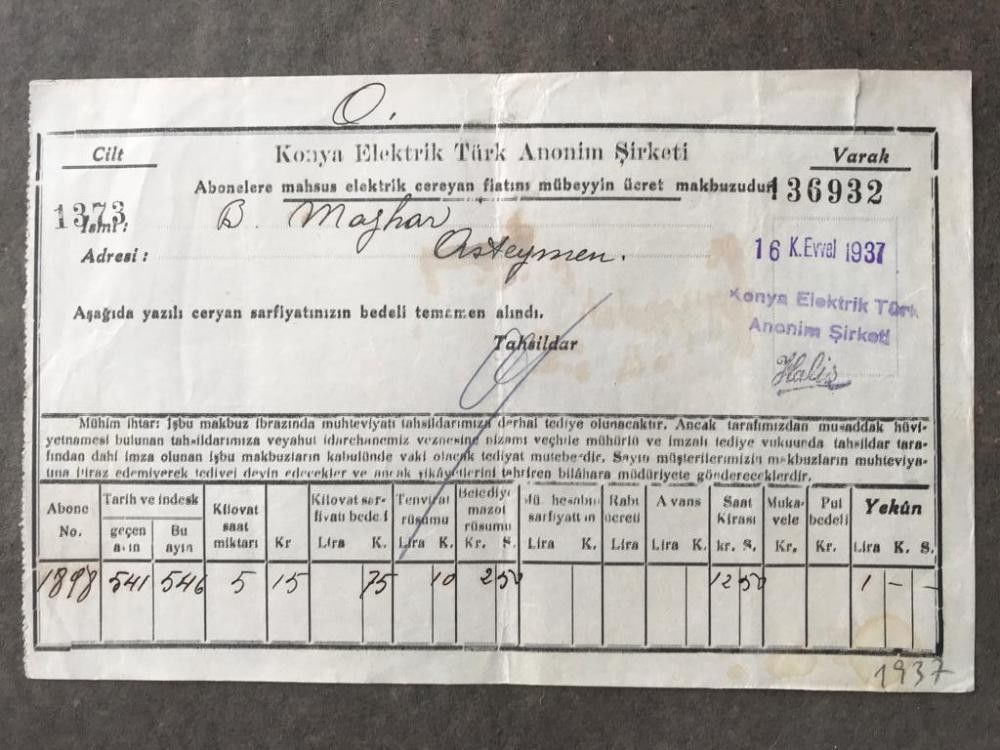 O.
Cilt
Konya Elektrik Türk Anonim Şirketi
Varak
Abonelere mahsus elektrik cereyan fiatını mübeyyin ücret makbuzudur
136932
1373
İsmi :
B. Mazhar
Adresi :
Asteymen.
16 K.Evvel 1937
Konya Elektrik Türk
Anonim Şirketi
Halis
Aşağıda yazılı ceryan sarfiyatınızın bedeli temamen alındı.
Tahsildar
Mühim ihtar: İşbu makbuz ibrazında muhteviyatı tahsildarımıza derhal tediye olunacaktır. Ancak tarafımızdan musaddak hüvi-
yetnamesi bulunan tahsildarımıza veyahut idarehanemiz veznesine nizamî veçhile mühürlü ve imzalı tediye vukuurda tahsildar tara-
fından dahi imza olunan işbu makbuzların kabulünde vaki olacak tediyat muteberdir. Sayın müşterilerimizin makbuzların muhteviya-
tına itiraz edemiyerek tediyei deyin edecekler ve ancak şikâyetlerini tahriren bilâhara müdüriyete göndereceklerdir.
Abone No.
Tarih ve indesk
geçen ayın
Bu ayın
Kilovat saat miktarı
Kr
Kilovat sar-fiyatı bedeli
Lira K.
Tenvirat rüsumu
Lira K.
Belediye mazot rüsumu
Kr. S.
sarfiyattan
Lira K.
Rabt ücreti
Lira
Avans
Lira K.
Saat Kirası
kr. S.
Muka-vele
Kr.
Pul bedeli
Kr.
Yekûn
Lira K. S.
1898 541 546 5 15 75 10 2 50 12 50 1 - -
1937